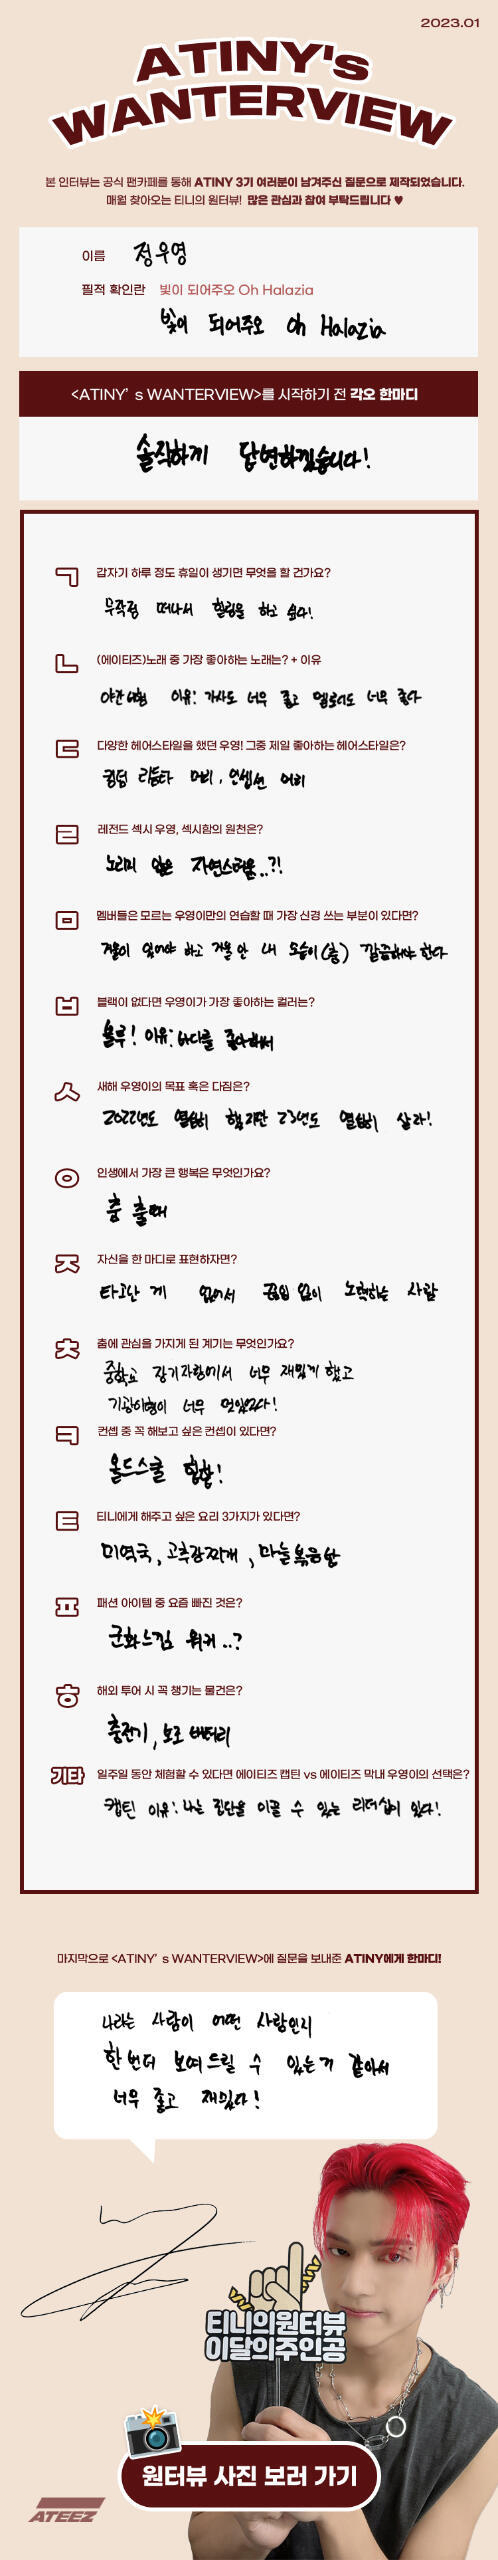 2023.01
ATINY's
WANTERVIEW
본 인터뷰는 공식 팬카페를 통해 ATINY 3기 여러분이 남겨주신 질문으로 제작되었습니다.
매월 찾아오는 티니의 원터뷰! 많은 관심과 참여 부탁드립니다 ♥
이름 정우영
필적 확인란 빛이 되어주오 Oh Halazia
빛이 되어주오 Oh Halazia
<ATINY's WANTERVIEW>를 시작하기 전 각오 한마디
솔직하게 답변하겠습니다!
ㄱ 갑자기 하루 정도 휴일이 생기면 무엇을 할 건가요?
무작정 떠나서 힐링을 하고 싶다!
ㄴ (에이티즈)노래 중 가장 좋아하는 노래는? + 이유
야간비행 이유: 가사도 너무 좋고 멜로디도 너무 좋다
ㄷ 다양한 헤어스타일을 했던 우영! 그중 제일 좋아하는 헤어스타일은?
킹덤 리듬타 머리, 인셉션 머리
ㄹ 레전드 섹시 우영, 섹시함의 원천은?
노리지 않은 자연스러움..?!
ㅁ 멤버들은 모르는 우영이만의 연습할 때 가장 신경 쓰는 부분이 있다면?
거울이 있어야 하고 거울 안 내 모습이(춤) 깔끔해야 한다
ㅂ 블랙이 없다면 우영이가 가장 좋아하는 컬러는?
블루! 이유: 바다를 좋아해서
ㅅ 새해 우영이의 목표 혹은 다짐은?
2022년도 열심히 했지만 23년도 열심히 살자!
ㅇ 인생에서 가장 큰 행복은 무엇인가요?
춤 출때
ㅈ 자신을 한 마디로 표현하자면?
타고난 게 없어서 끊임 없이 노력하는 사람
ㅊ 춤에 관심을 가지게 된 계기는 무엇인가요?
중학교 장기자랑에서 너무 재밌게 했고
기광이형이 너무 멋있었다!
ㅋ 컨셉 중 꼭 해보고 싶은 컨셉이 있다면?
올드스쿨 힙합!
ㅌ 티니에게 해주고 싶은 요리 3가지가 있다면?
미역국, 고추장찌개, 마늘볶음밥
ㅍ 패션 아이템 중 요즘 빠진 것은?
군화느낌 워커..?
ㅎ 해외 투어 시 꼭 챙기는 물건은?
충전기, 보조 배터리
기타 일주일 동안 체험할 수 있다면 에이티즈 캡틴 vs 에이티즈 막내 우영이의 선택은?
캡틴 이유: 나는 집단을 이끌 수 있는 리더십이 있다!
마지막으로 <ATINY's WANTERVIEW>에 질문을 보내준 ATINY에게 한마디!
나라는 사람이 어떤 사람인지
한번더 보여드릴 수 있는거 같아서
너무 좋고 재밌다!
티니의원터뷰
이달의주인공
원터뷰 사진 보러 가기
ATEEZ